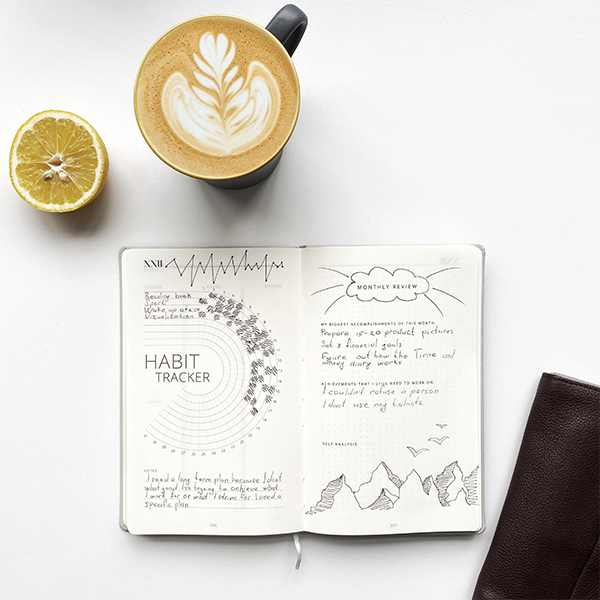 XXII
Reading book
Sport
Wake up at
Vizualization
HABIT
TRACKER
NOTES
I need a long term plan because I dont
what good I'm trying to achieve and
I work for or what I strive for I need a
specific plan
MONTHLY REVIEW
MY BIGGEST ACCOMPLISHMENTS OF THIS MONTH
Prepare 15-20 product pictures
Set 3 financial goals
Figure out how the Time and
money diary works
ACHIEVEMENTS THAT I STILL NEED TO WORK ON
I couldn't refuse a person
I dont use my talents.
SELF ANALYSIS